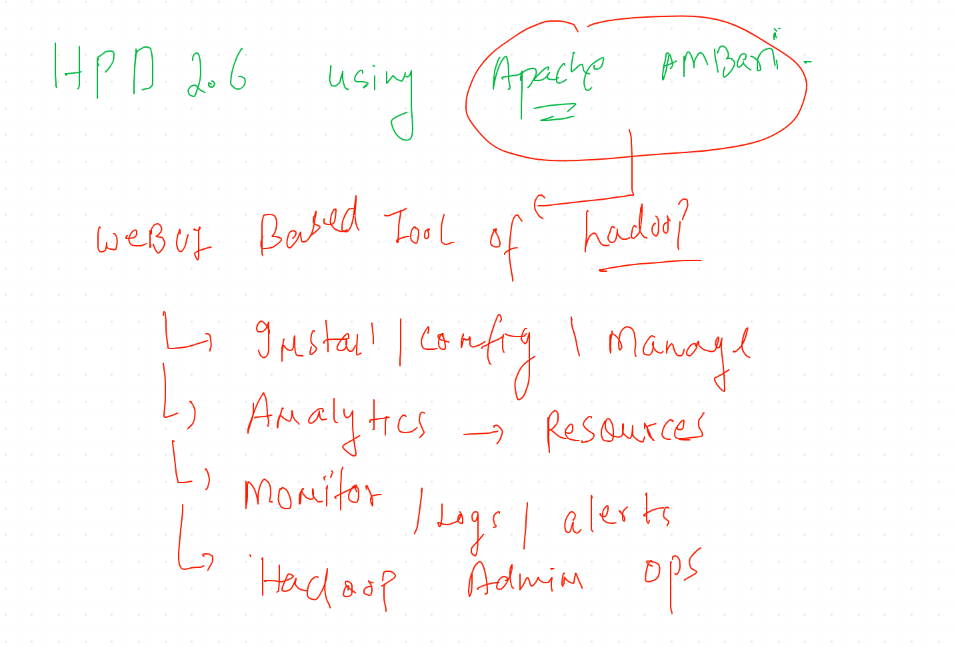 HPD 2.6 using Apache AMBari
WeBUI Based Tool of hadoop
Install / config / Manage
Analytics → Resources
Monitor / Logs / alerts
Hadoop Admin ops